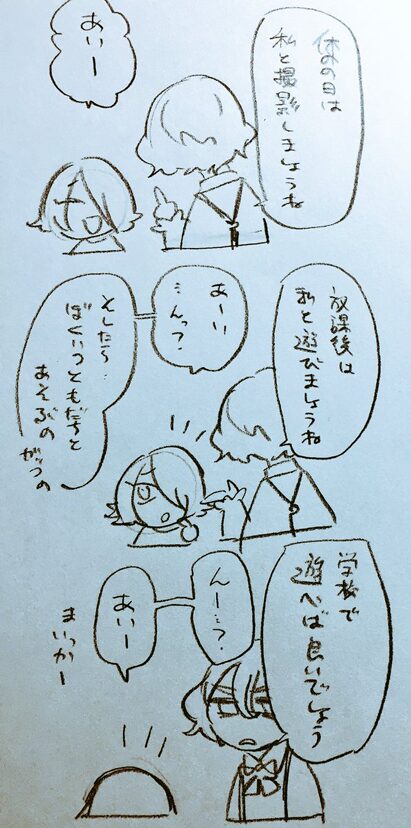 休みの日は
私と撮影しましょうね
あいー
放課後は
私と遊びましょうね
あーい
…んっ？
そしたら…
ぼくいつともだちと
あそぶの
がっつの
学校で
遊べば良いでしょう
んー…？
あいー
まいっかー